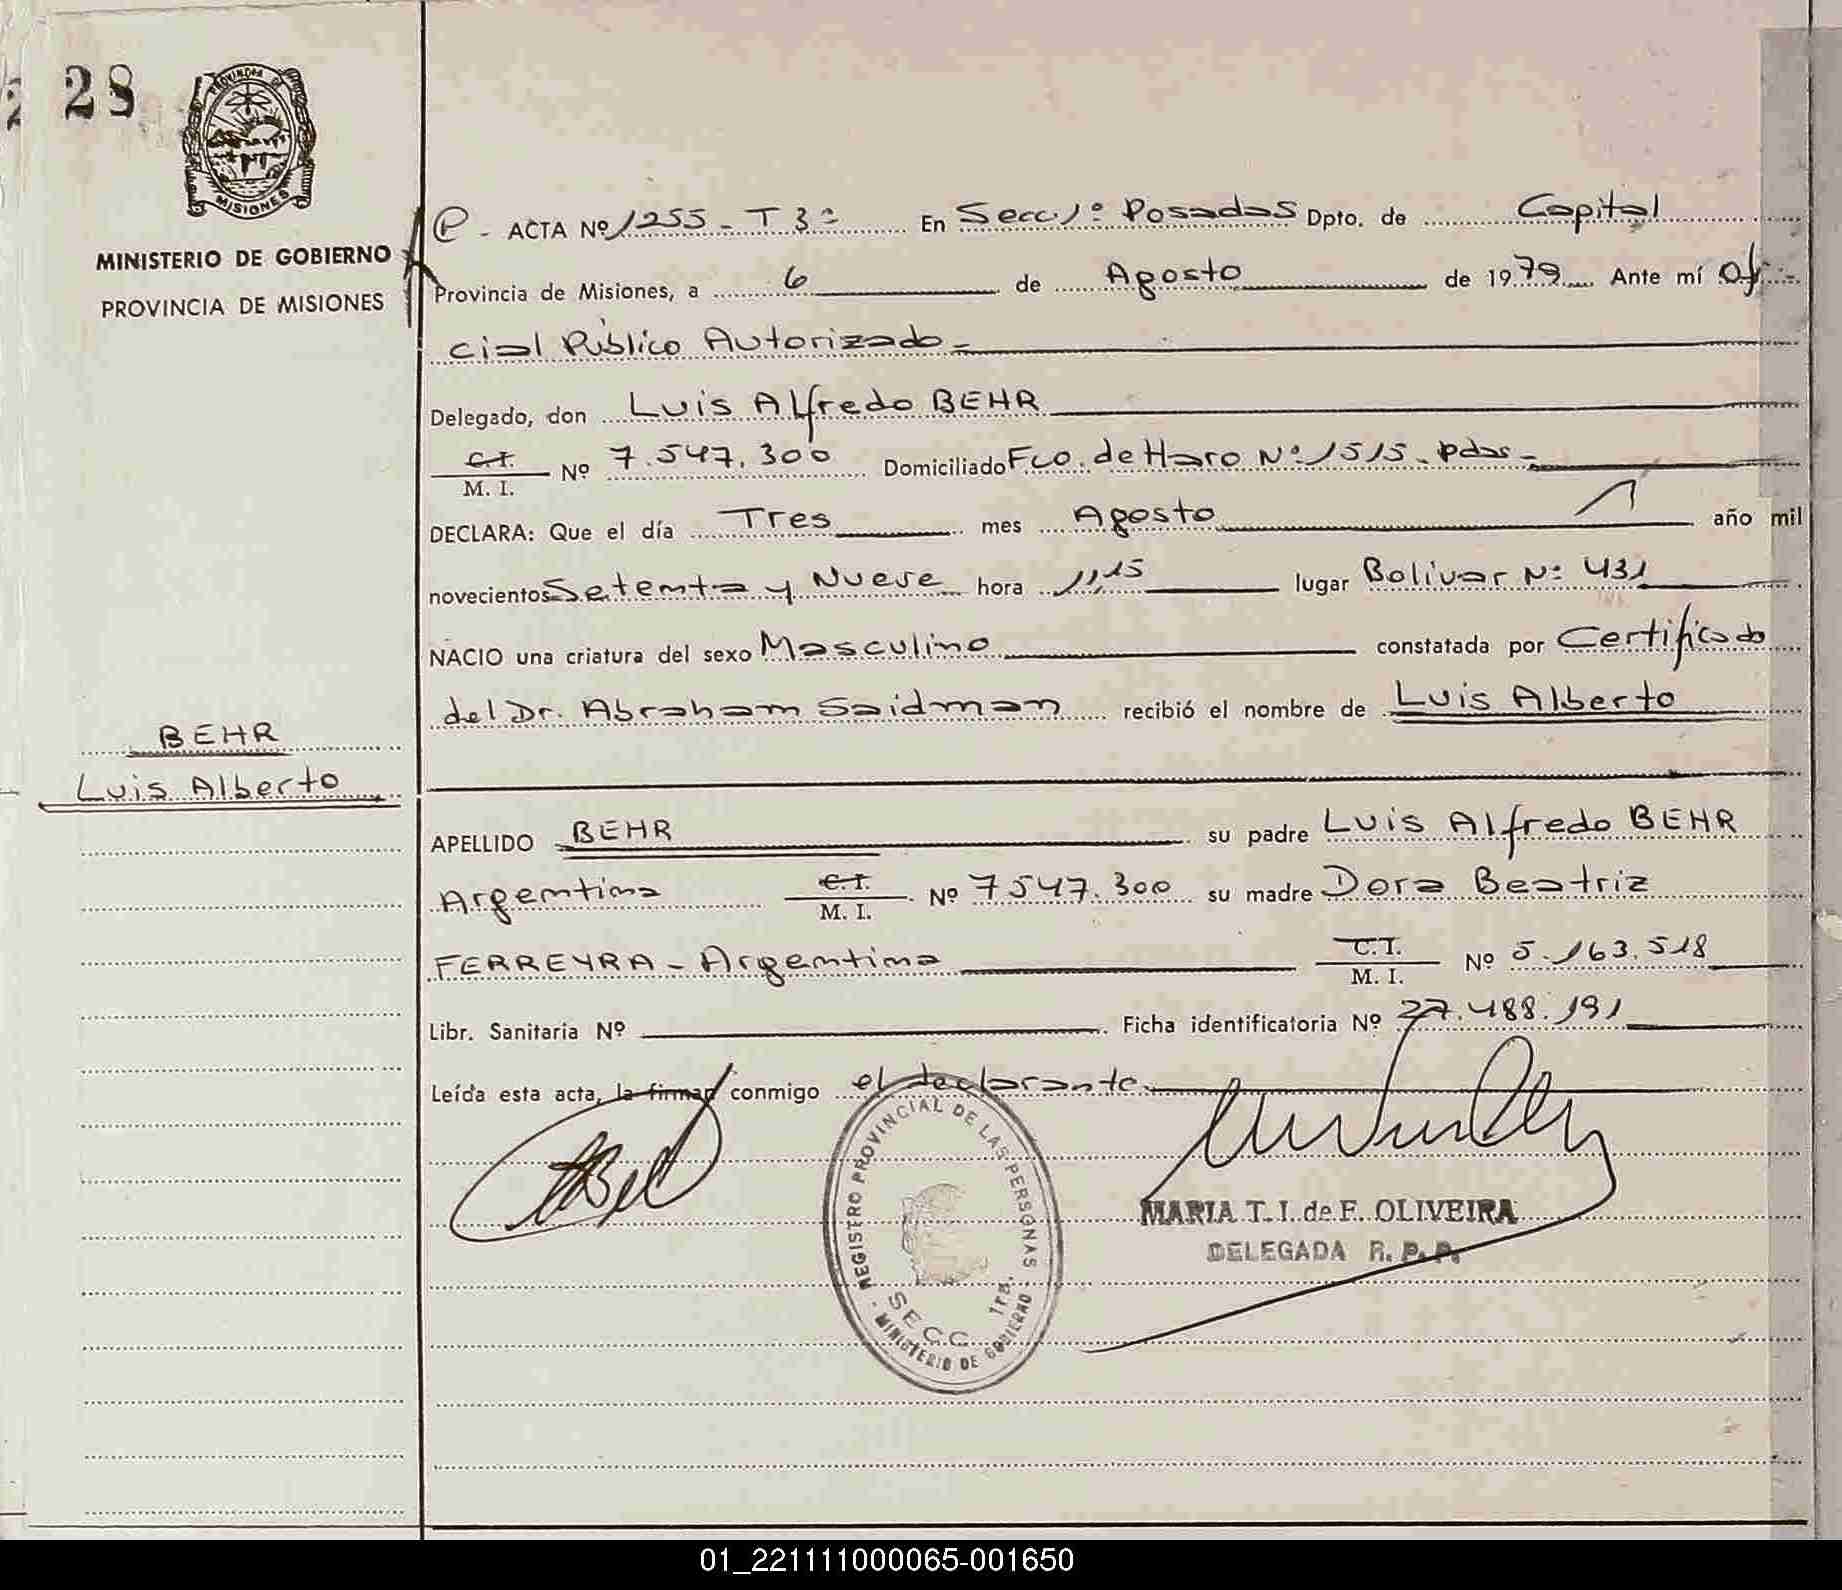 28
PROVINCIA DE
MISIONES
MINISTERIO DE GOBIERNO
PROVINCIA DE MISIONES
BEHR
Luis Alberto
P - ACTA Nº 1255 - T 3º En Secc 1º Posadas Dpto. de Capital
Provincia de Misiones, a 6 de Agosto de 1979 Ante mí Ofi-
cial Público Autorizado -
Delegado, don Luis Alfredo BEHR
C.I. / M. I. Nº 7.547.300 Domiciliado Fco. de Haro Nº 1515 - pdas -
DECLARA: Que el día Tres mes Agosto año mil
novecientos Setenta y Nueve hora 11,15 lugar Bolivar Nº 431
NACIO una criatura del sexo Masculino constatada por Certificado
del Dr. Abraham Saidman recibió el nombre de Luis Alberto
APELLIDO BEHR su padre Luis Alfredo BEHR
Argentina C.I. / M. I. Nº 7547.300 su madre Dora Beatriz
FERREYRA - Argentina C.I. / M. I. Nº 5.163.518
Libr. Sanitaria Nº Ficha identificatoria Nº 27.488.191
Leída esta acta, la firman conmigo el declarante
REGISTRO PROVINCIAL DE LAS PERSONAS
SECC 1ra.
MINISTERIO DE GOBIERNO
MARIA T. I. de F. OLIVEIRA
DELEGADA R. P. P.
01_221111000065-001650